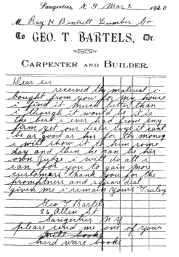 Saugerties, N.Y. Mar 2 1920
M Ray H Bennett Lumber Co
To GEO. T. BARTELS, Dr.
CARPENTER AND BUILDER.
Dear sir
I received the material i
bought from you for my house
i find it much better than
i though it would be it is
the best i ever had from eny
firm yet our dealer says it cant
be as good as his for the money
i will show it to him some
day and then he can be his
own Judge i will do all i
can for you to gain more
customers thank you for the
promptness and square deal
given me i remain yours Truley
Geo T Bartels
26 Allen St
Saugerties N Y
please send me one of your
hard ware book